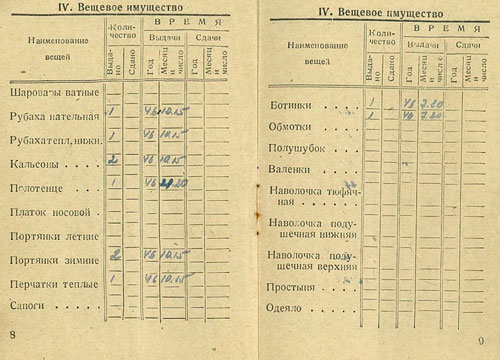 IV. Вещевое имущество
Наименование вещей
Количество
ВРЕМЯ
Выдачи
Сдачи
Выдано
Сдано
Год
Месяц и число
Год
Месяц и число
Шаровары ватные
Рубаха нательная 1 46 10.15
Рубаха тепл, нижн. 1 46 10.15
Кальсоны . . 2 46 10.15
Полотенце . . 1 46 20
Платок носовой .
Портянки летние
Портянки зимние 2 46 10.15
Перчатки теплые 1 46 10.15
Сапоги . . . .
8
IV. Вещевое имущество
Наименование вещей
Количество
ВРЕМЯ
Выдачи
Сдачи
Выдано
Сдано
Год
Месяц и число
Год
Месяц и число
Ботинки . . . . 1 46 7.20
Обмотки . . . . 1 46 7.20
Полушубок . .
Валенки . . . .
Наволочка тюфячная . . . . .
Наволочка подушечная нижняя
Наволочка подушечная верхняя
Простыня . . .
Одеяло . . . .
9